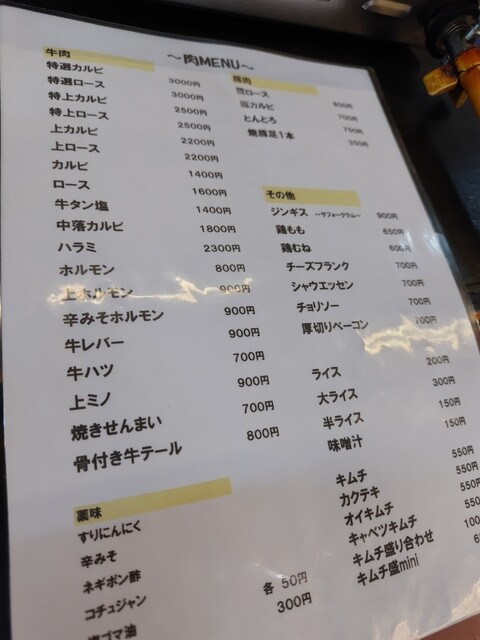 ～肉MENU～
牛肉
特選カルビ 3000円
特選ロース 3000円
特上カルビ 2500円
特上ロース 2500円
上カルビ 2200円
上ロース 2200円
カルビ 1400円
ロース 1600円
牛タン塩 1400円
中落カルビ 1800円
ハラミ 2300円
ホルモン 800円
上ホルモン 900円
辛みそホルモン 900円
牛レバー 900円
牛ハツ 700円
上ミノ 900円
焼きせんまい 700円
骨付き牛テール 800円
薬味
すりにんにく
辛みそ
ネギポン酢
コチュジャン
ゴマ油
各 50円
300円
豚肉
豚ロース 800円
豚カルビ 700円
とんとろ 750円
焼豚足1本 350円
その他
ジンギス ～サフォークラム～ 900円
鶏もも 650円
鶏むね 600円
チーズフランク 700円
シャウエッセン 700円
チョリソー 700円
厚切りベーコン 700円
ライス 200円
大ライス 300円
半ライス 150円
味噌汁 150円
キムチ 550円
カクテキ 550円
オイキムチ 550円
キャベツキムチ 550
キムチ盛り合わせ
キムチ盛mini